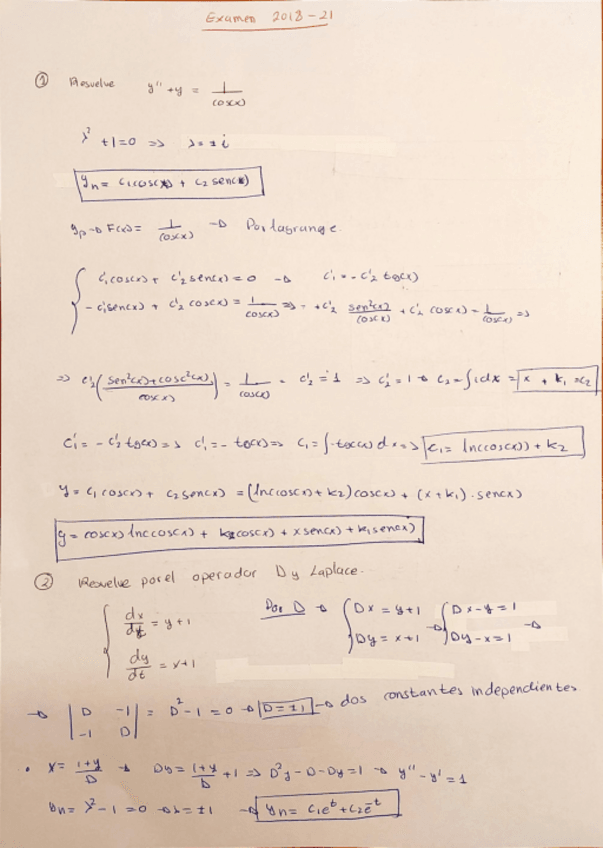 Examen 2018-21
① Resuelve y'' + y = 1/cos(x)
λ² + 1 = 0 => λ = ± i
yn = c1 cos(x) + c2 sen(x)
yp → F(x) = 1/cos(x) → Por lagrange.
{ c1' cos(x) + c2' sen(x) = 0 → c1' = - c2' tg(x)
- c1' sen(x) + c2' cos(x) = 1/cos(x) => + c2' sen²(x)/cos(x) + c2' cos(x) = 1/cos(x) =>
=> c2' ( sen²(x) + cos²(x) / cos(x) ) = 1/cos(x) = c2' = 1 => c2' = 1 → c2 = ∫ 1 dx = x + k1 = c2
c1' = - c2' tg(x) => c1' = - tg(x) => c1 = ∫ -tg(x) dx => c1 = ln(cos(x)) + k2
y = c1 cos(x) + c2 sen(x) = (ln(cos(x) + k2) cos(x) + (x + k1) · sen(x)
y = cos(x) ln(cos(x) + k2 cos(x) + x sen(x) + k1 sen(x)
② Resuelve por el operador D y Laplace.
{ dx/dt = y + 1
dy/dt = x + 1
Por D → { Dx = y + 1
Dy = x + 1 → { Dx - y = 1
Dy - x = 1 →
→ | D -1 |
| -1 D | = D² - 1 = 0 → D = ± 1 → dos constantes independientes
• x = 1+y/D → Dy = 1+y/D + 1 => D²y - D - Dy = 1 → y'' - y' = 1
yn = λ² - 1 = 0 → λ = ± 1 → yn = c1 e^t + c2 e^-t